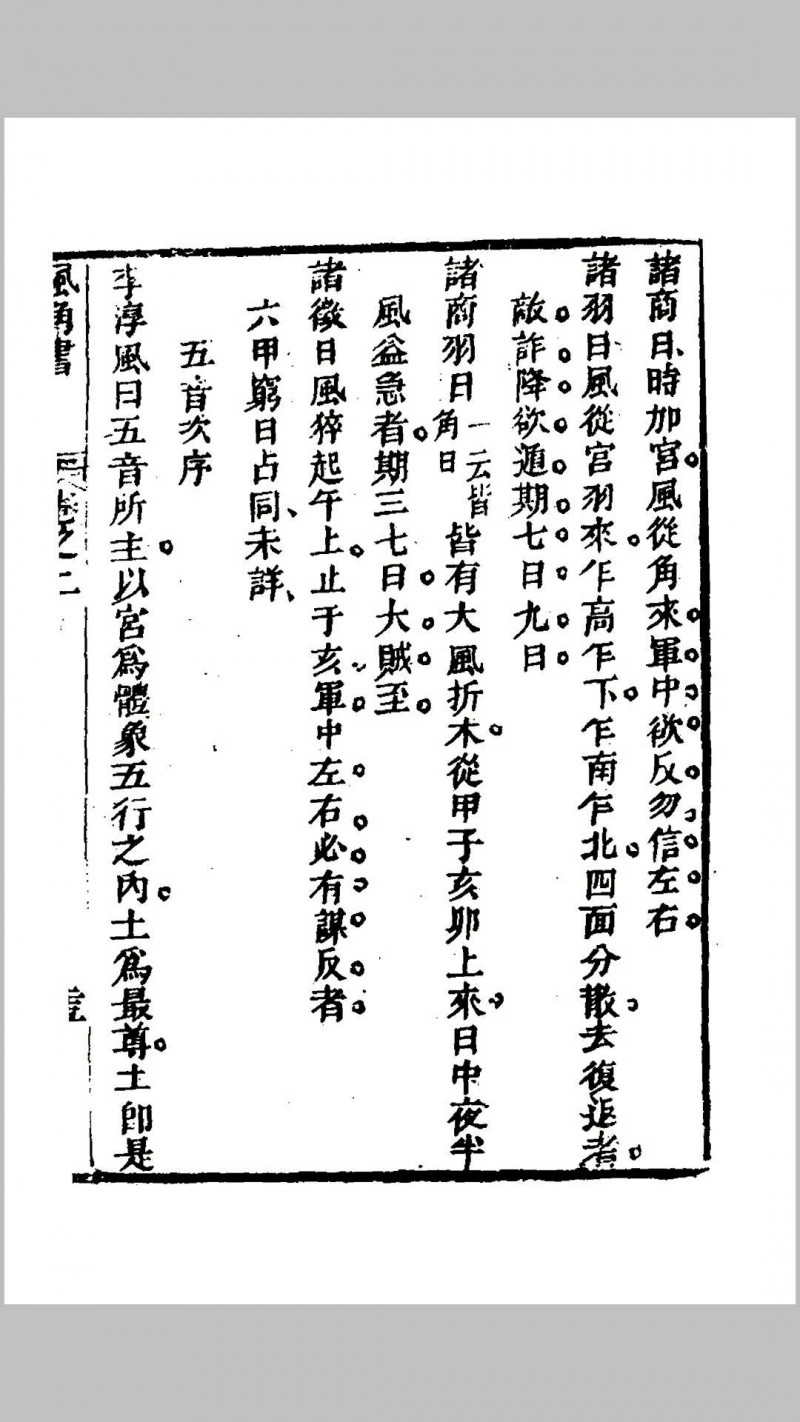 諸商日時加宮風從角來軍中欲反勿信左右
諸羽日風從宮羽來乍高乍下乍南乍北四面分散去復返者
敵詐降欲遁期七日九日
諸商羽日一云皆角日皆有大風折木從甲子亥卯上來日中夜半
風益急者期三七日大賊至
諸徵日風猝起午上止于亥軍中左右必有謀反者
六甲窮日占同未詳
五音次序
李淳風曰五音所主以宮爲體象五行之內土爲最尊土卽是
風角書 卷之二